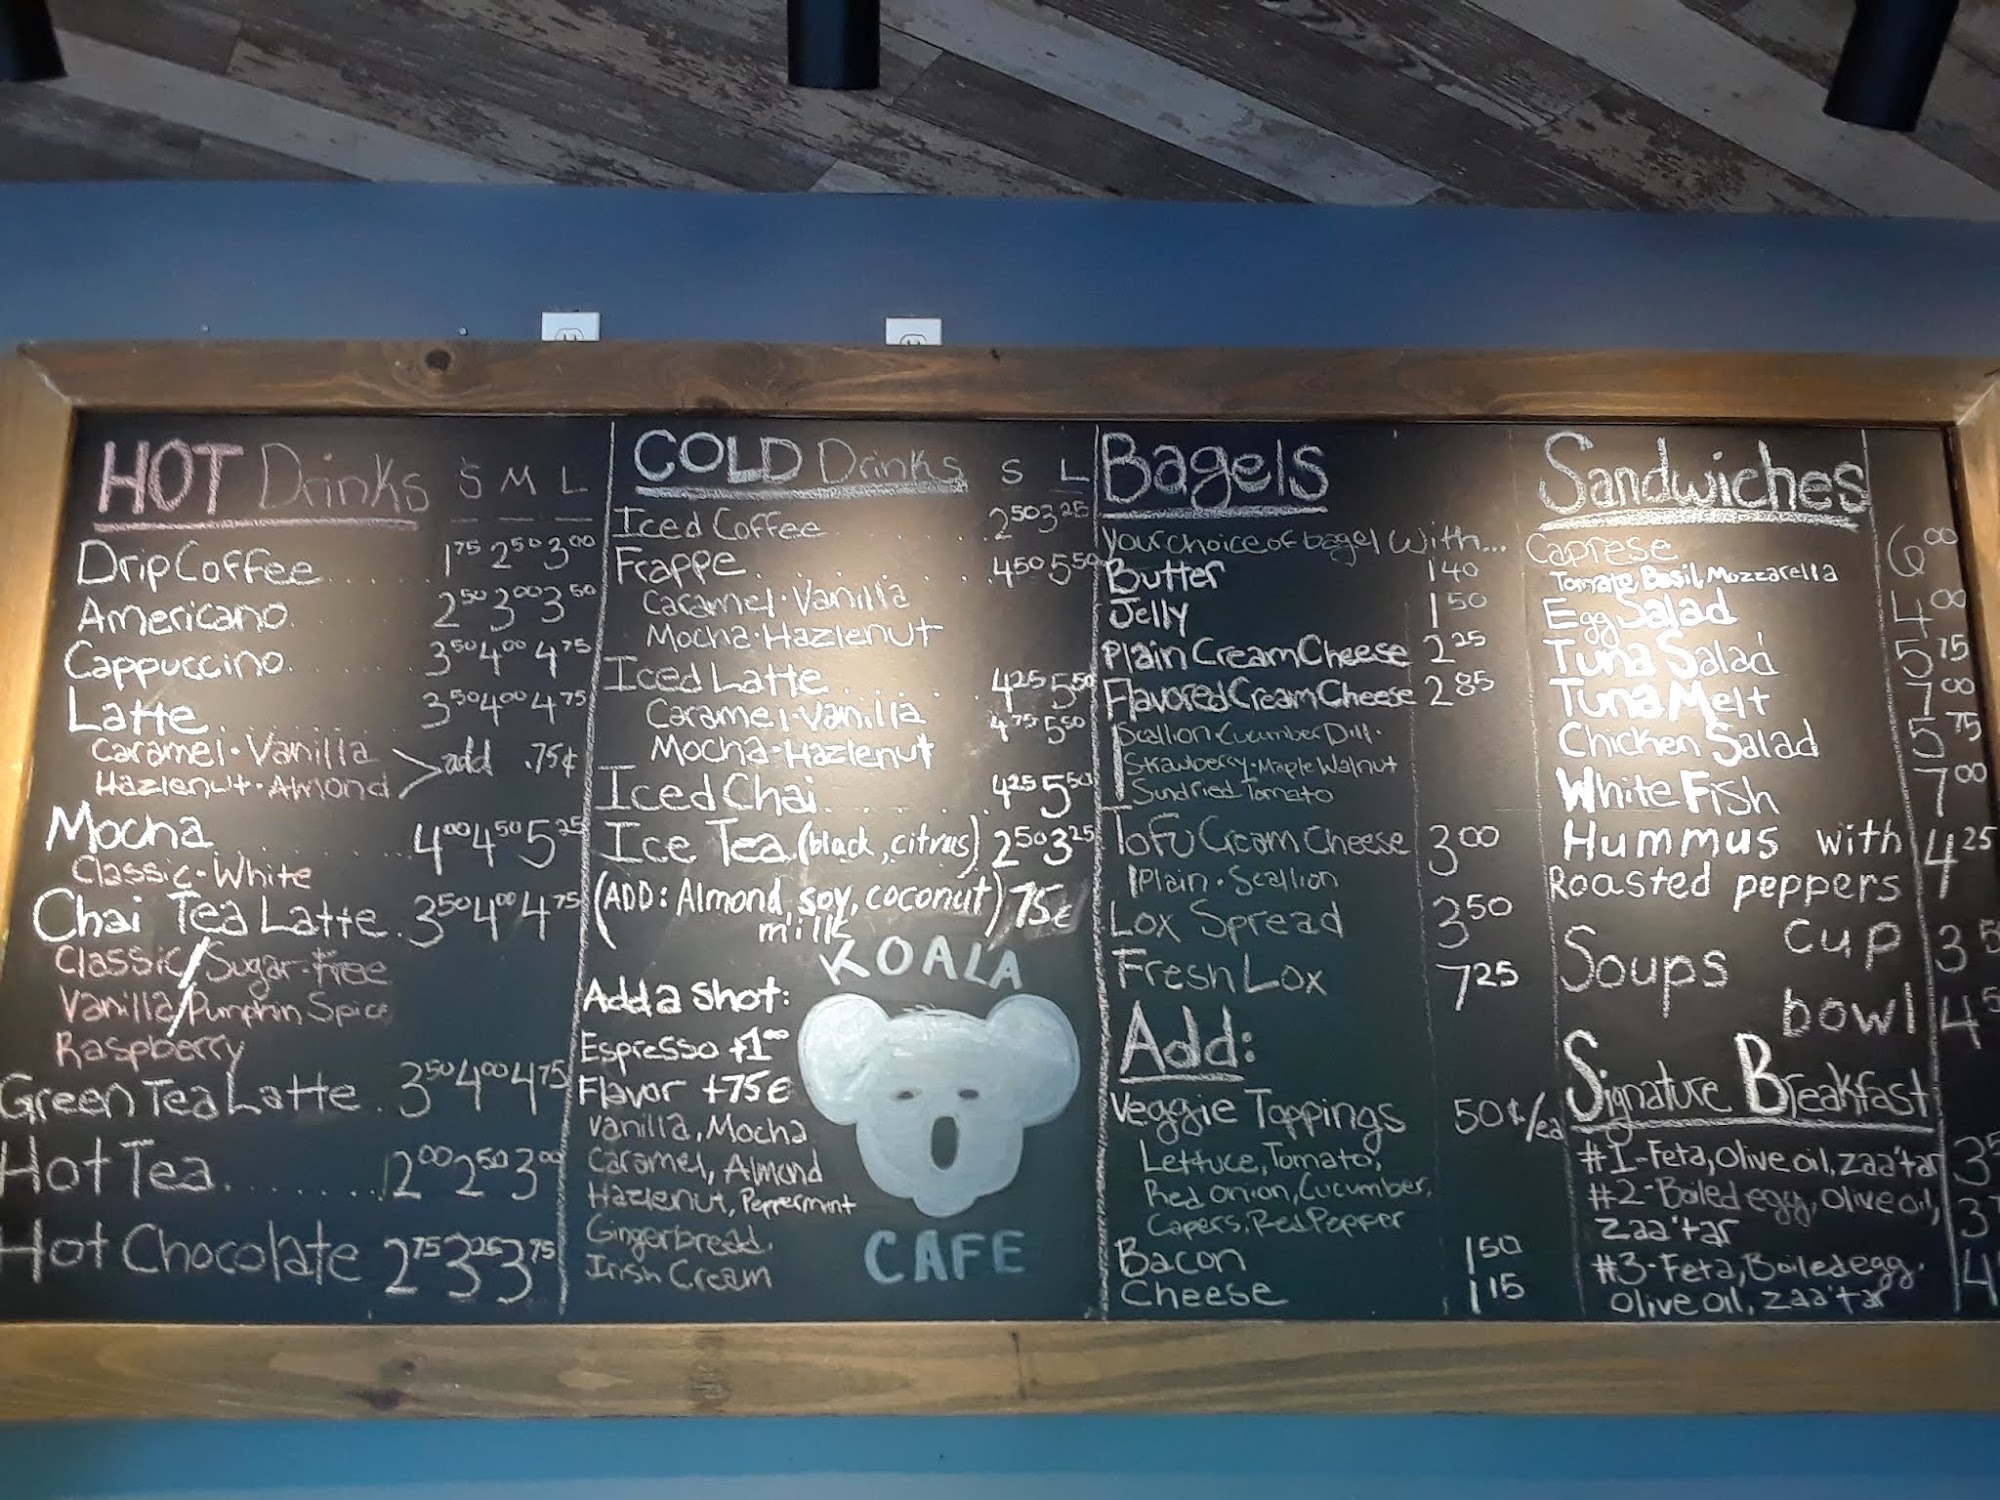 HOT Drinks S M L
Drip Coffee 1 75 2 50 3 00
Americano 2 50 3 00 3 50
Cappuccino 3 50 4 00 4 75
Latte 3 50 4 00 4 75
Caramel · Vanilla
Hazlenut · Almond > add .75¢
Mocha 4 00 4 50 5 25
Classic · White
Chai Tea Latte 3 50 4 00 4 75
Classic / Sugar-free
Vanilla / Pumpkin Spice
Raspberry
Green Tea Latte 3 50 4 00 4 75
Hot Tea 2 00 2 50 3 00
Hot Chocolate 2 75 3 25 3 75
COLD Drinks S L
Iced Coffee 2 50 3 25
Frappe 4 50 5 50
Caramel · Vanilla
Mocha · Hazlenut
Iced Latte 4 25 5 50
Caramel · Vanilla 4 75 5 50
Mocha · Hazlenut
Iced Chai 4 25 5 50
Ice Tea (black, citrus) 2 50 3 25
(ADD: Almond, soy, coconut) 75¢
milk
Add a shot:
Espresso +1 00
Flavor +75¢
Vanilla, Mocha
Caramel, Almond
Hazlenut, Peppermint
Gingerbread,
Irish Cream
KOALA
CAFE
Bagels
Your choice of bagel with...
Butter 1 40
Jelly 1 50
Plain Cream Cheese 2 25
Flavored Cream Cheese 2 85
Scallion · Cucumber Dill ·
Strawberry · Maple Walnut
Sundried Tomato
Tofu Cream Cheese 3 00
Plain · Scallion
Lox Spread 3 50
Fresh Lox 7 25
Add:
Veggie Toppings 50¢/ea
Lettuce, Tomato,
Red Onion, Cucumber,
Capers, Red Pepper
Bacon 1 50
Cheese 1 15
Sandwiches
Caprese 6 00
Tomato, Basil, Mozzarella
Egg Salad 4 00
Tuna Salad 5 75
Tuna Melt 7 00
Chicken Salad 5 75
White Fish 7 00
Hummus with 4 25
Roasted peppers
Soups cup 3
bowl 4
Signature Breakfast
#1-Feta, Olive oil, Zaa'tar 3
#2-Boiled egg, Olive oil, 3
Zaa'tar
#3-Feta, Boiled egg, 4
Olive oil, Zaa'tar